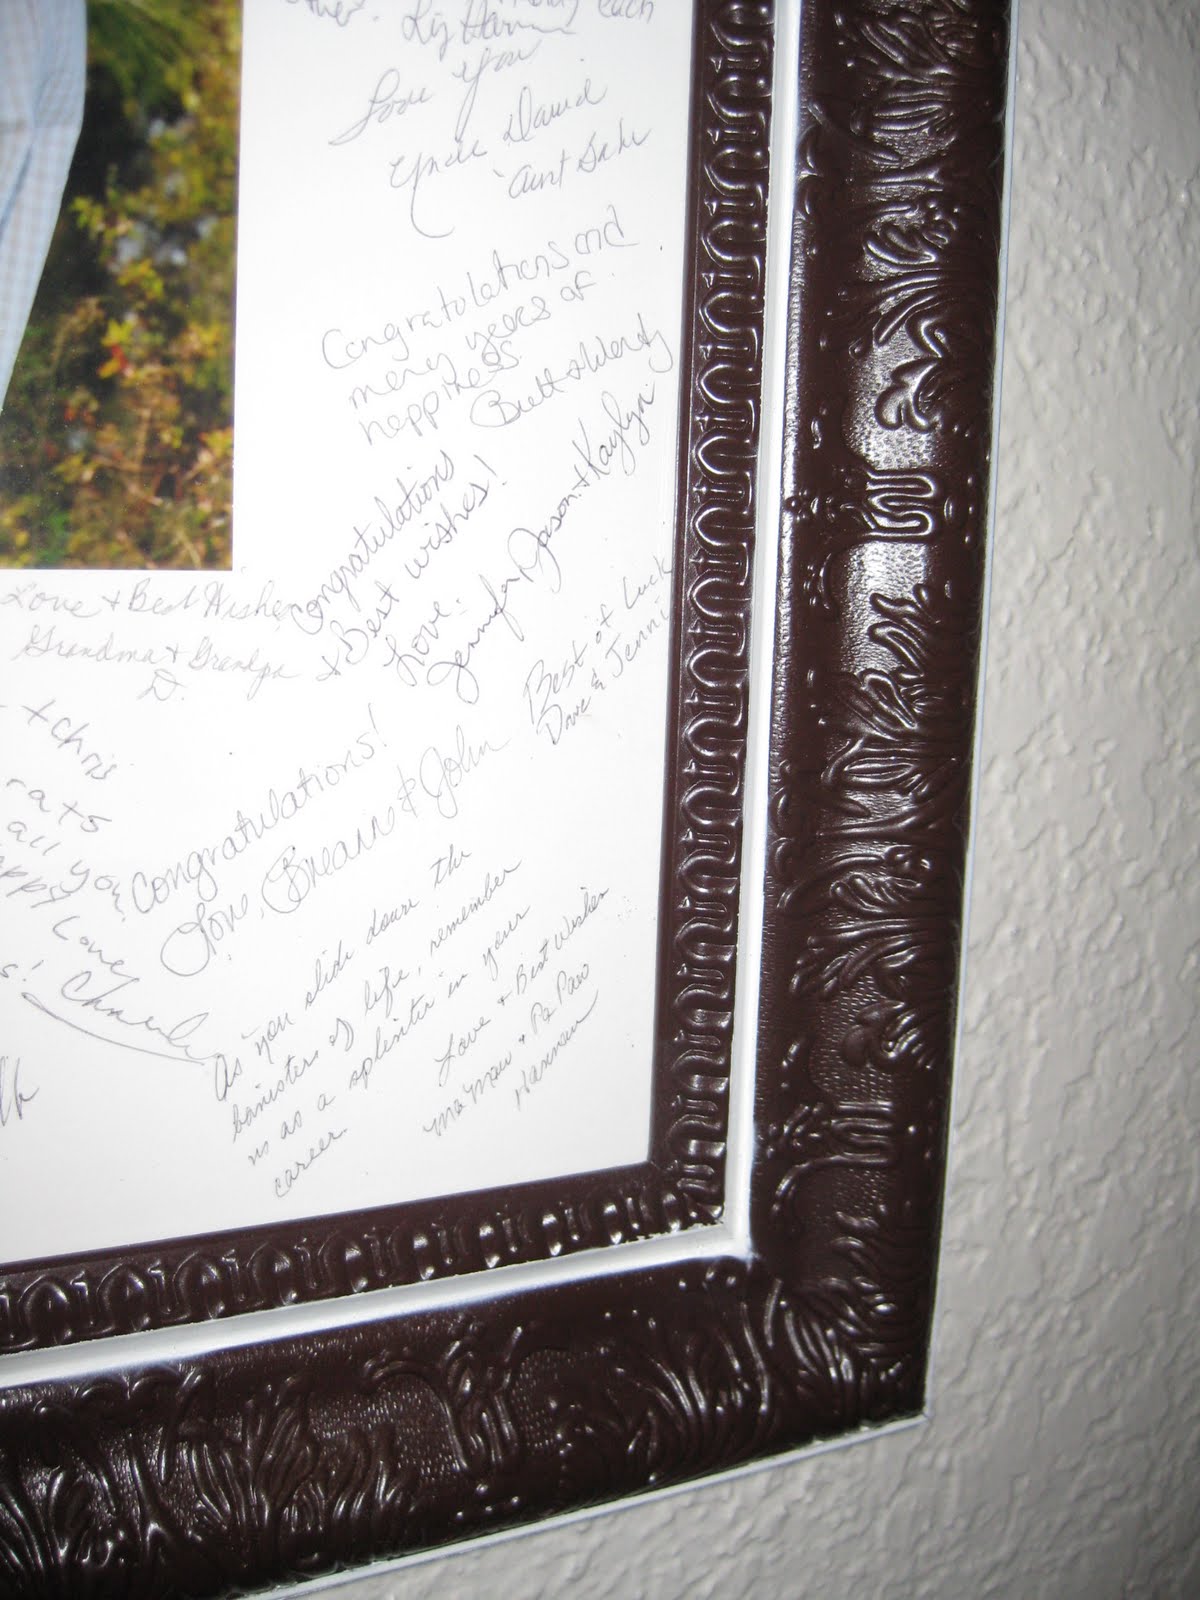 each
Liz
Love You
Uncle David
Aunt
Congratulations and
many years of
happiness.
Brett & Wendy
Congratulations
+ Best wishes!
Love,
Jennifer, Jason & Kaylyn
Best of Luck
Dave & Jenni
Love + Best Wishes
Grandma + Grandpa
D.
+ Chris
all you
Love,
Congratulations!
Love, Breann & John
As you slide down the
banisters of life, remember
us as a splinter in your
career.
Love + Best Wishes
MaMaw + Pa Paw